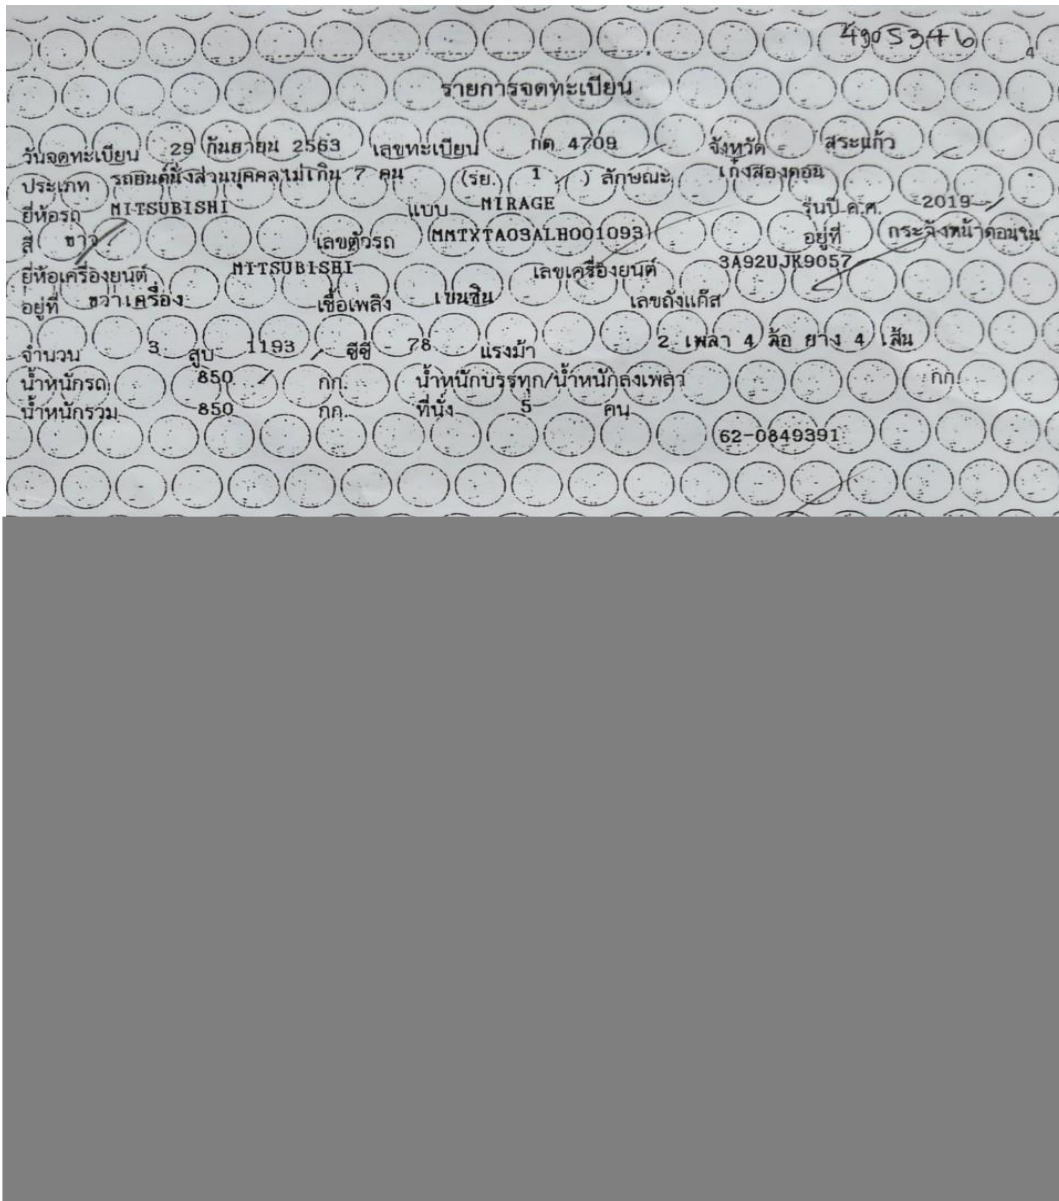 4905346
4
รายการจดทะเบียน
วันจดทะเบียน 29 กันยายน 2563 เลขทะเบียน กด 4709 จังหวัด สระแก้ว
ประเภท รถยนต์นั่งส่วนบุคคลไม่เกิน 7 คน (รย. 1 ) ลักษณะ เก๋งสองตอน
ยี่ห้อรถ MITSUBISHI แบบ MIRAGE รุ่นปี ค.ศ. 2019
สี ขาว เลขตัวรถ MMTXTA03ALH001093 อยู่ที่ กระจังหน้าตอนใน
ยี่ห้อเครื่องยนต์ MITSUBISHI เลขเครื่องยนต์ 3A92UJK9057
อยู่ที่ ขวาเครื่อง เชื้อเพลิง เบนซิน เลขถังแก๊ส
จำนวน 3 สูบ 1193 ซีซี 78 แรงม้า 2 เพลา 4 ล้อ ยาง 4 เส้น
น้ำหนักรถ 850 กก. น้ำหนักบรรทุก/น้ำหนักลงเพลา กก.
น้ำหนักรวม 850 กก. ที่นั่ง 5 คน
62-0849391